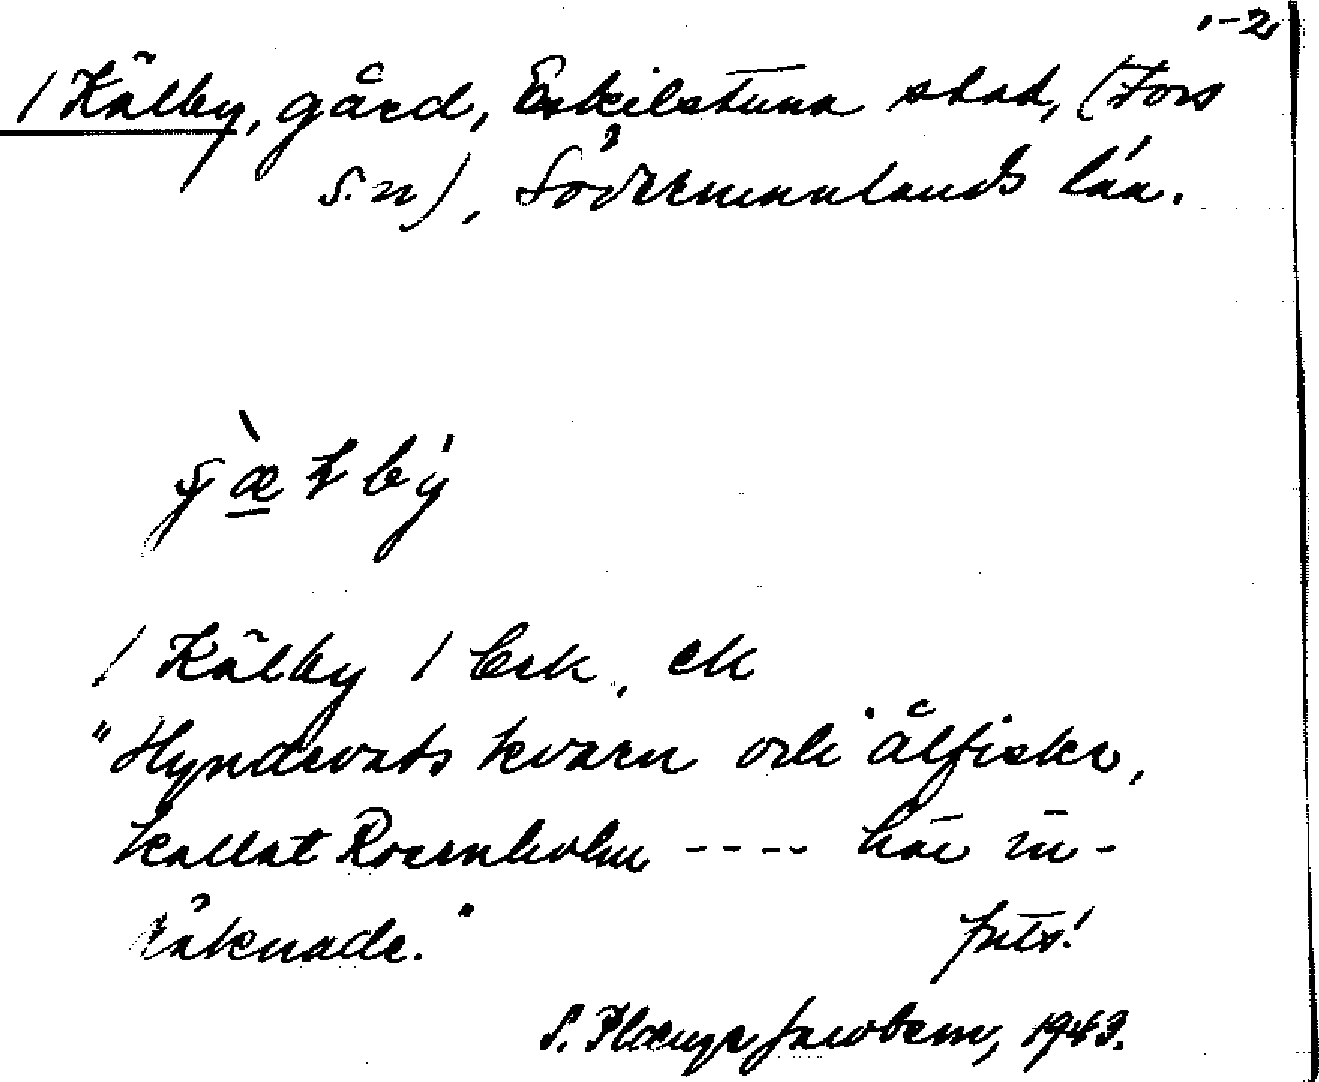 1-2
/ Kälby, gård, Eskilstuna stad, (Fors
s:n), Södermanlands län.
/ Kälby / Eek, ek
"Hyndevads kvarn och ålfiske,
kallat Rosenholm ---- här in-
räknade."
forts!
S. Jacobson, 1943.